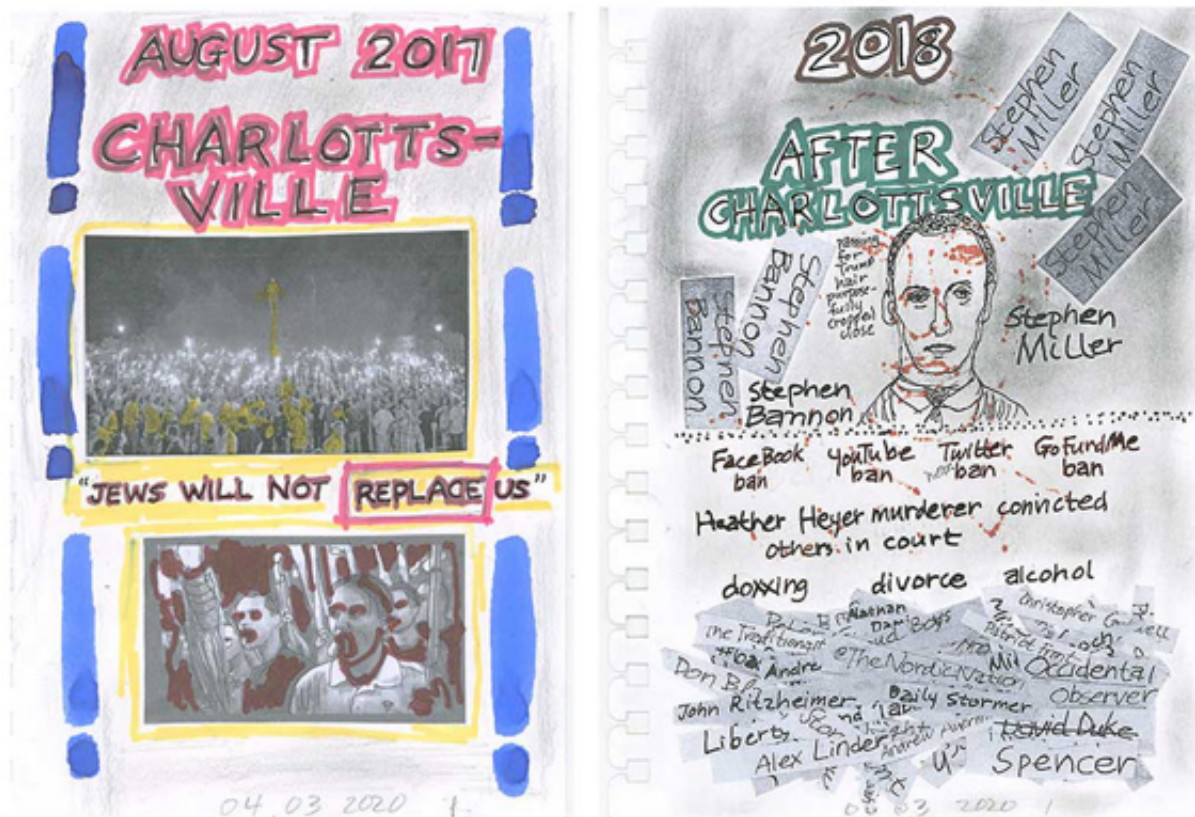 AUGUST 2017
CHARLOTTS-
VILLE
"JEWS WILL NOT REPLACE US"
04.03 2020 1
2018
AFTER
CHARLOTTSVILLE
Stephen
Miller
Stephen
Miller
Stephen
Miller
Stephen
Bannon
Stephen
Bannon
passing
for
Trump
hair
purpose-
fully
cropped
close
Stephen
Miller
Stephen
Bannon
FaceBook YouTube Twitter GoFundMe
ban ban not ban ban
Heather Heyer murderer convicted
others in court
doxxing divorce alcohol
Nathan
Christopher
Boys
Patriot
@TheNordicNation
Occidental
Observer
Andre
Don
John Ritzheimer
Daily Stormer
Liberty
Alex Linder
Andrew
David Duke
Spencer
03 2020 1